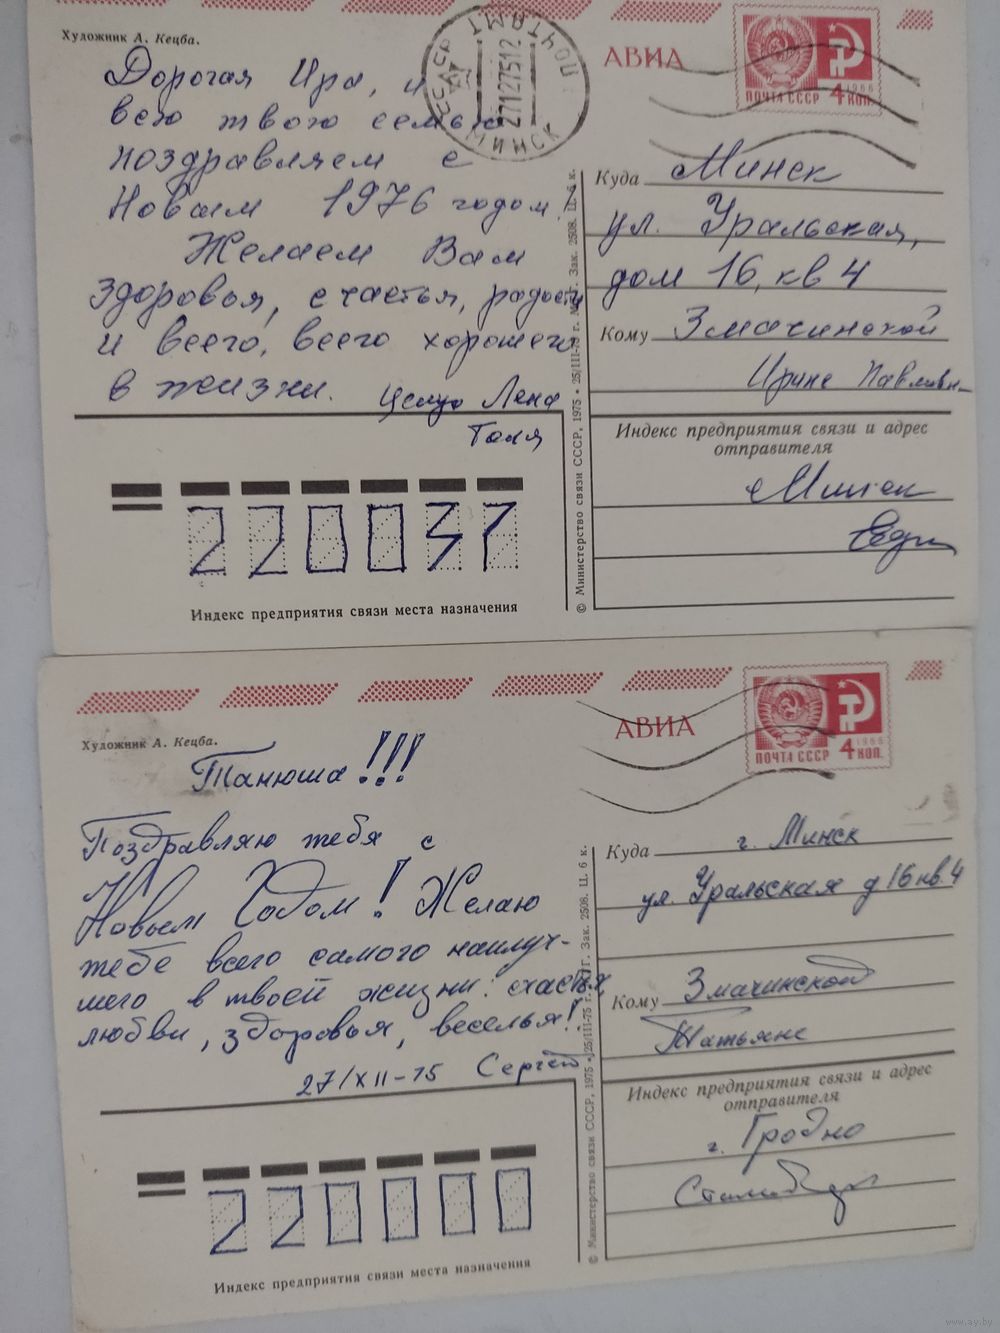 Художник А. Кецба.
АВИА
ПОЧТА СССР 4 КОП.
1966
БССР МИНСК ПОЧТАМТ
27127512
Дорогая Ира, и
всю твою семью
поздравляем с
Новым 1976 годом!
Желаем Вам
здоровья, счастья, радости
и всего, всего хорошего
в жизни.
Целую Лена
Толя
Куда Минск
ул. Уральская,
дом 16, кв 4
Кому Змачинской
Ирине Павловн
Индекс предприятия связи и адрес
отправителя
Минск
220037
Индекс предприятия связи места назначения
© Министерство связи СССР, 1975 • 25/III-75 г. Зак. 2508. Ц. 6 к.
Художник А. Кецба.
АВИА
ПОЧТА СССР 4 КОП.
1966
Танюша!!!
Поздравляю тебя с
Новым Годом! Желаю
тебе всего самого наилуч-
шего в твоей жизни: счастья
любви, здоровья, веселья!
27/XII-75 Сергей
Куда г. Минск
ул. Уральская д 16 кв. 4
Кому Змачинской
Татьяне
Индекс предприятия связи и адрес
отправителя
г. Гродно
220000
Индекс предприятия связи места назначения
© Министерство связи СССР, 1975 • 25/III-75 г. Зак. 2508. Ц. 6 к.
www.ay.by